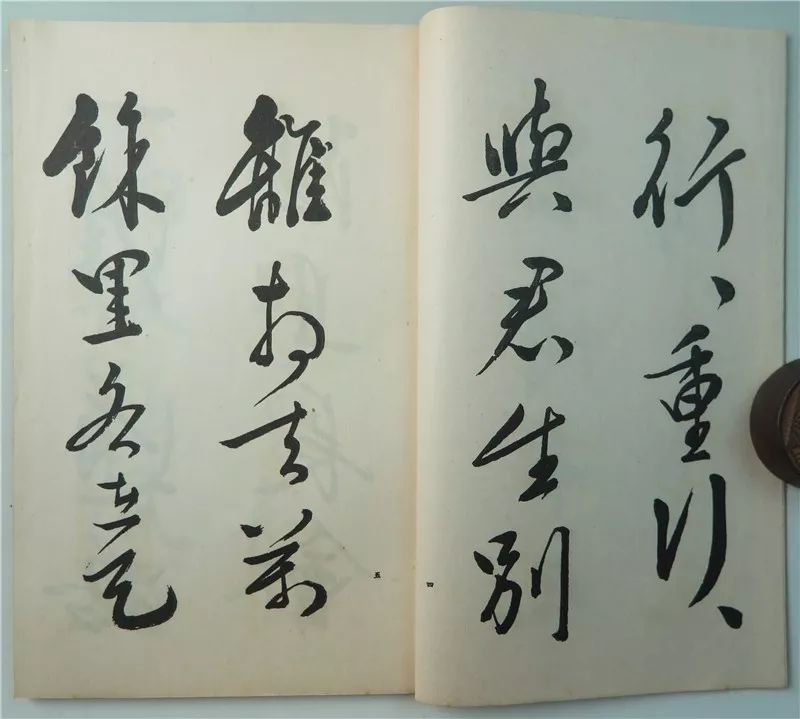 行、重行、
與君生別
四
離相去萬
餘里各在天
五